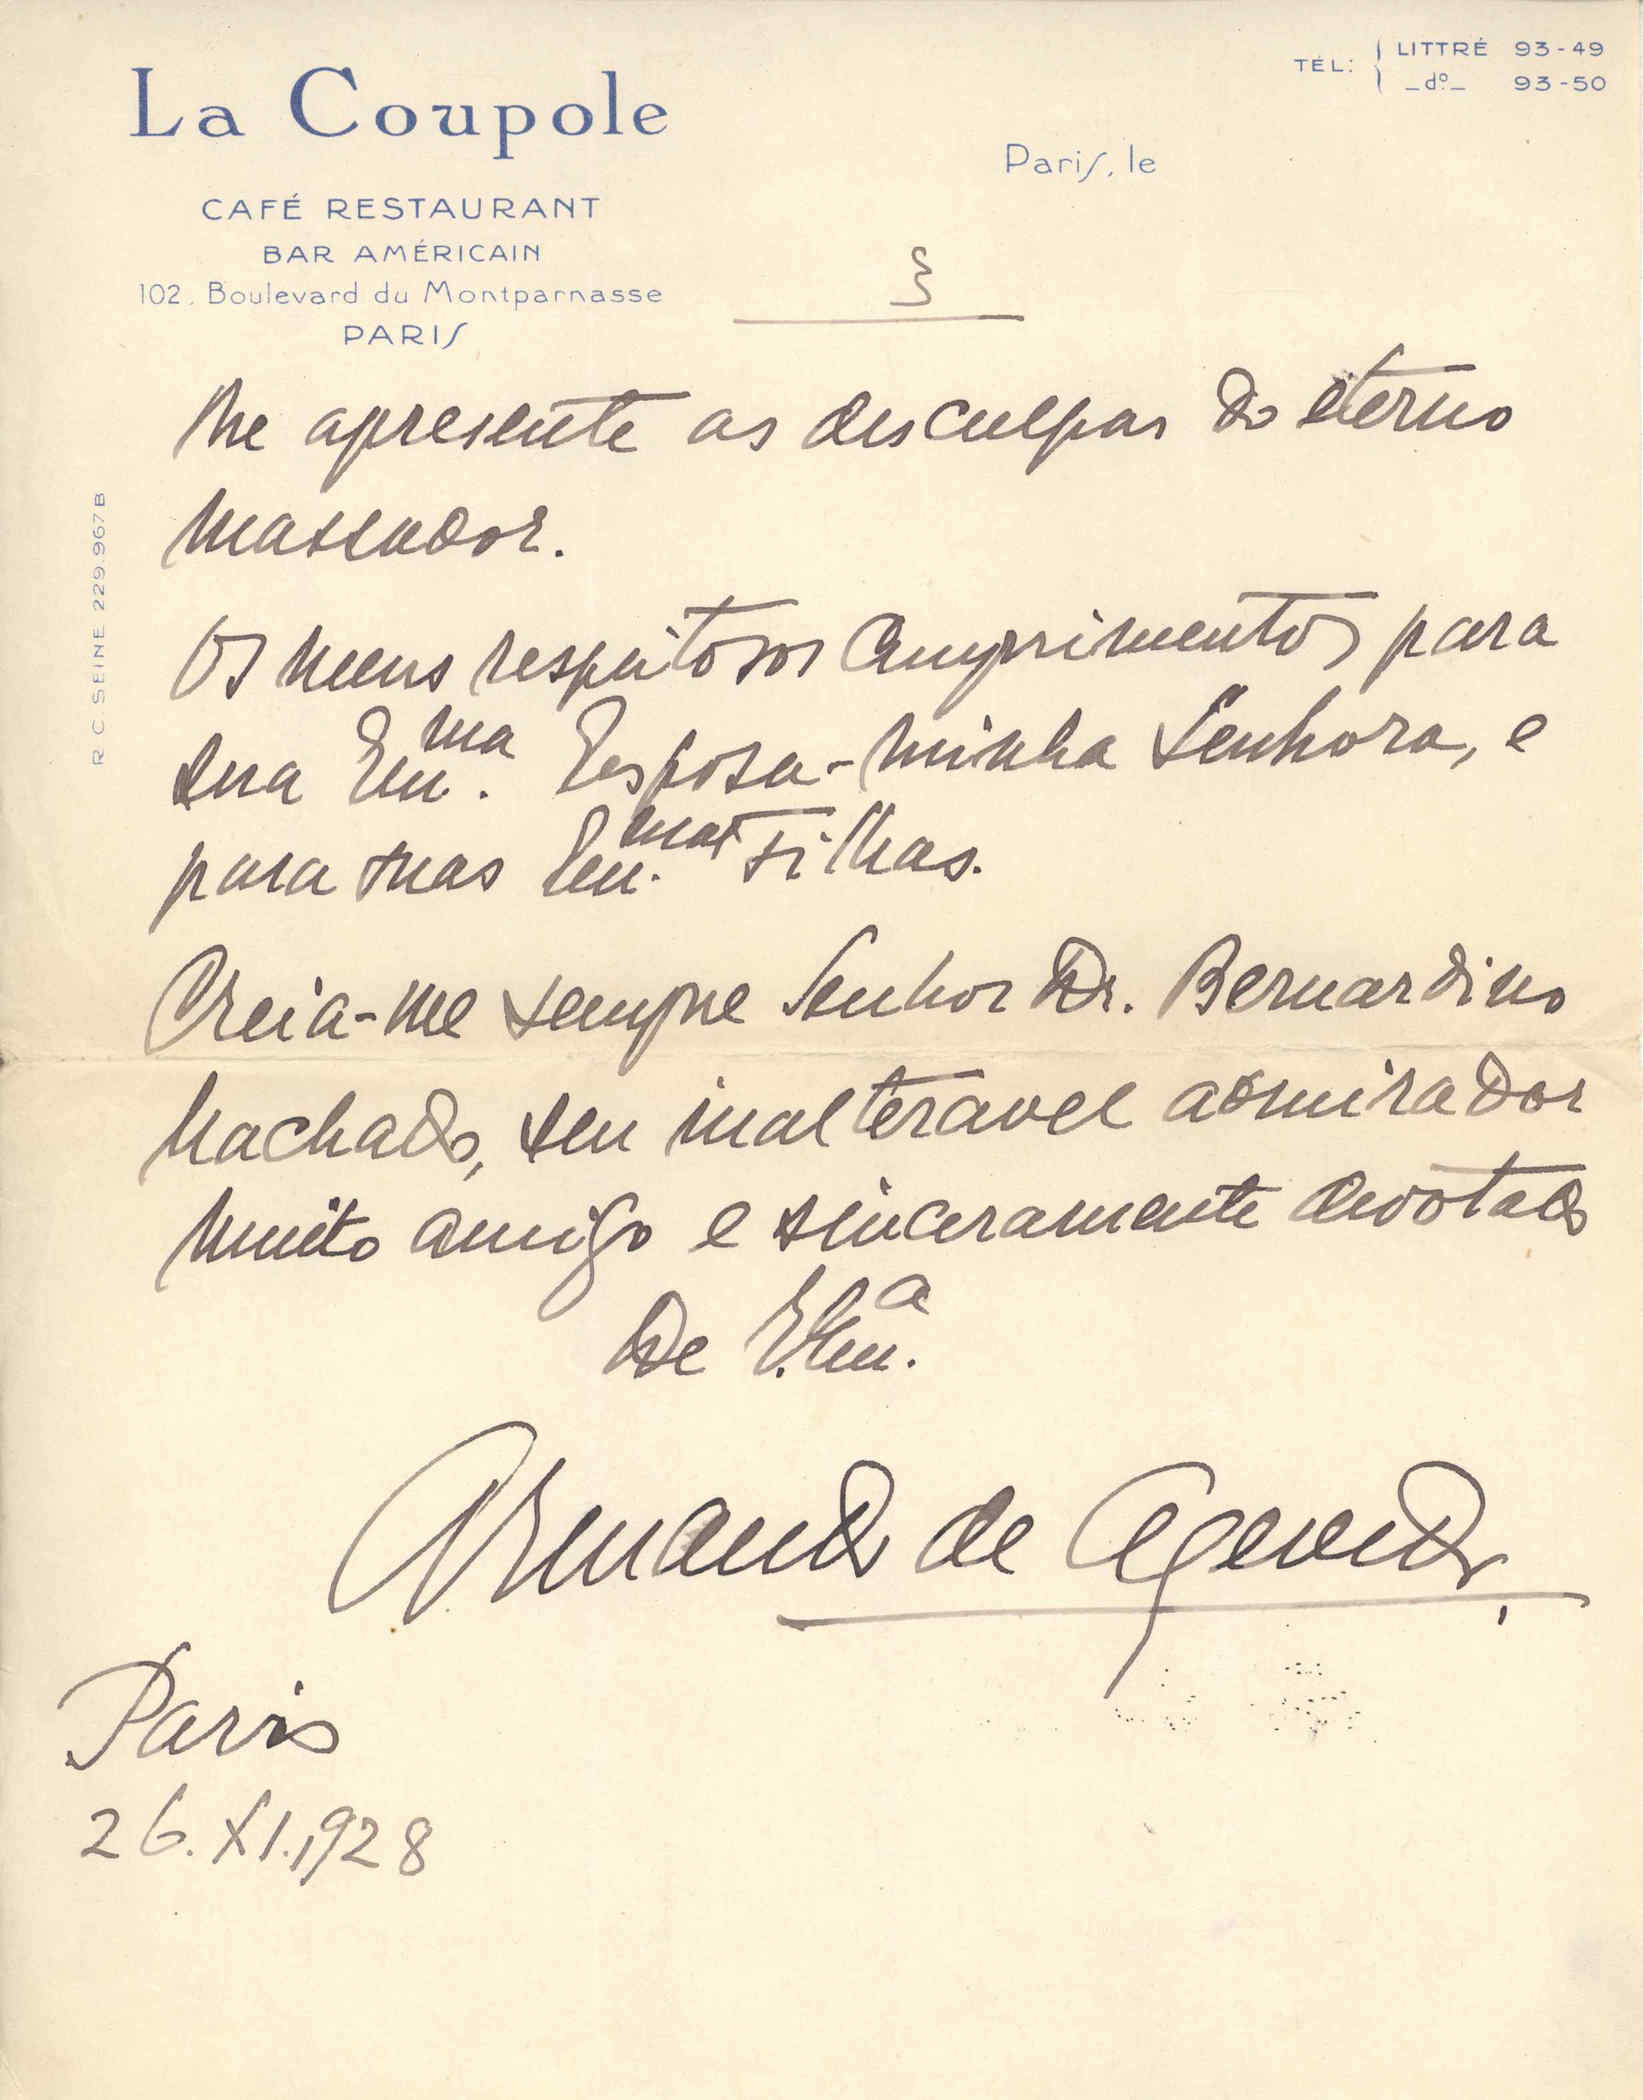 La Coupole
CAFÉ RESTAURANT
BAR AMÉRICAIN
102, Boulevard du Montparnasse
PARIS
TÉL: LITTRÉ 93-49
_dº_ 93-50
Paris, le
3
R C SEINE 229.967 B
me apresente as desculpas do eterno
massador.
Os meus respeitosos cumprimentos para
sua Em.ma Esposa - minha Senhora, e
para suas Em.mas filhas.
Creia-me sempre Senhor Dr. Bernardino
Machado, seu inalteravel admirador
muito amigo e sinceramente devotado
De V. Em.a
Armando de Agevedo,
Paris
26.XI.1928